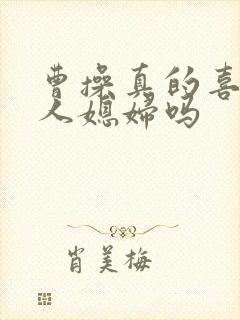 曹操真的喜
人媳妇吗
肖美梅